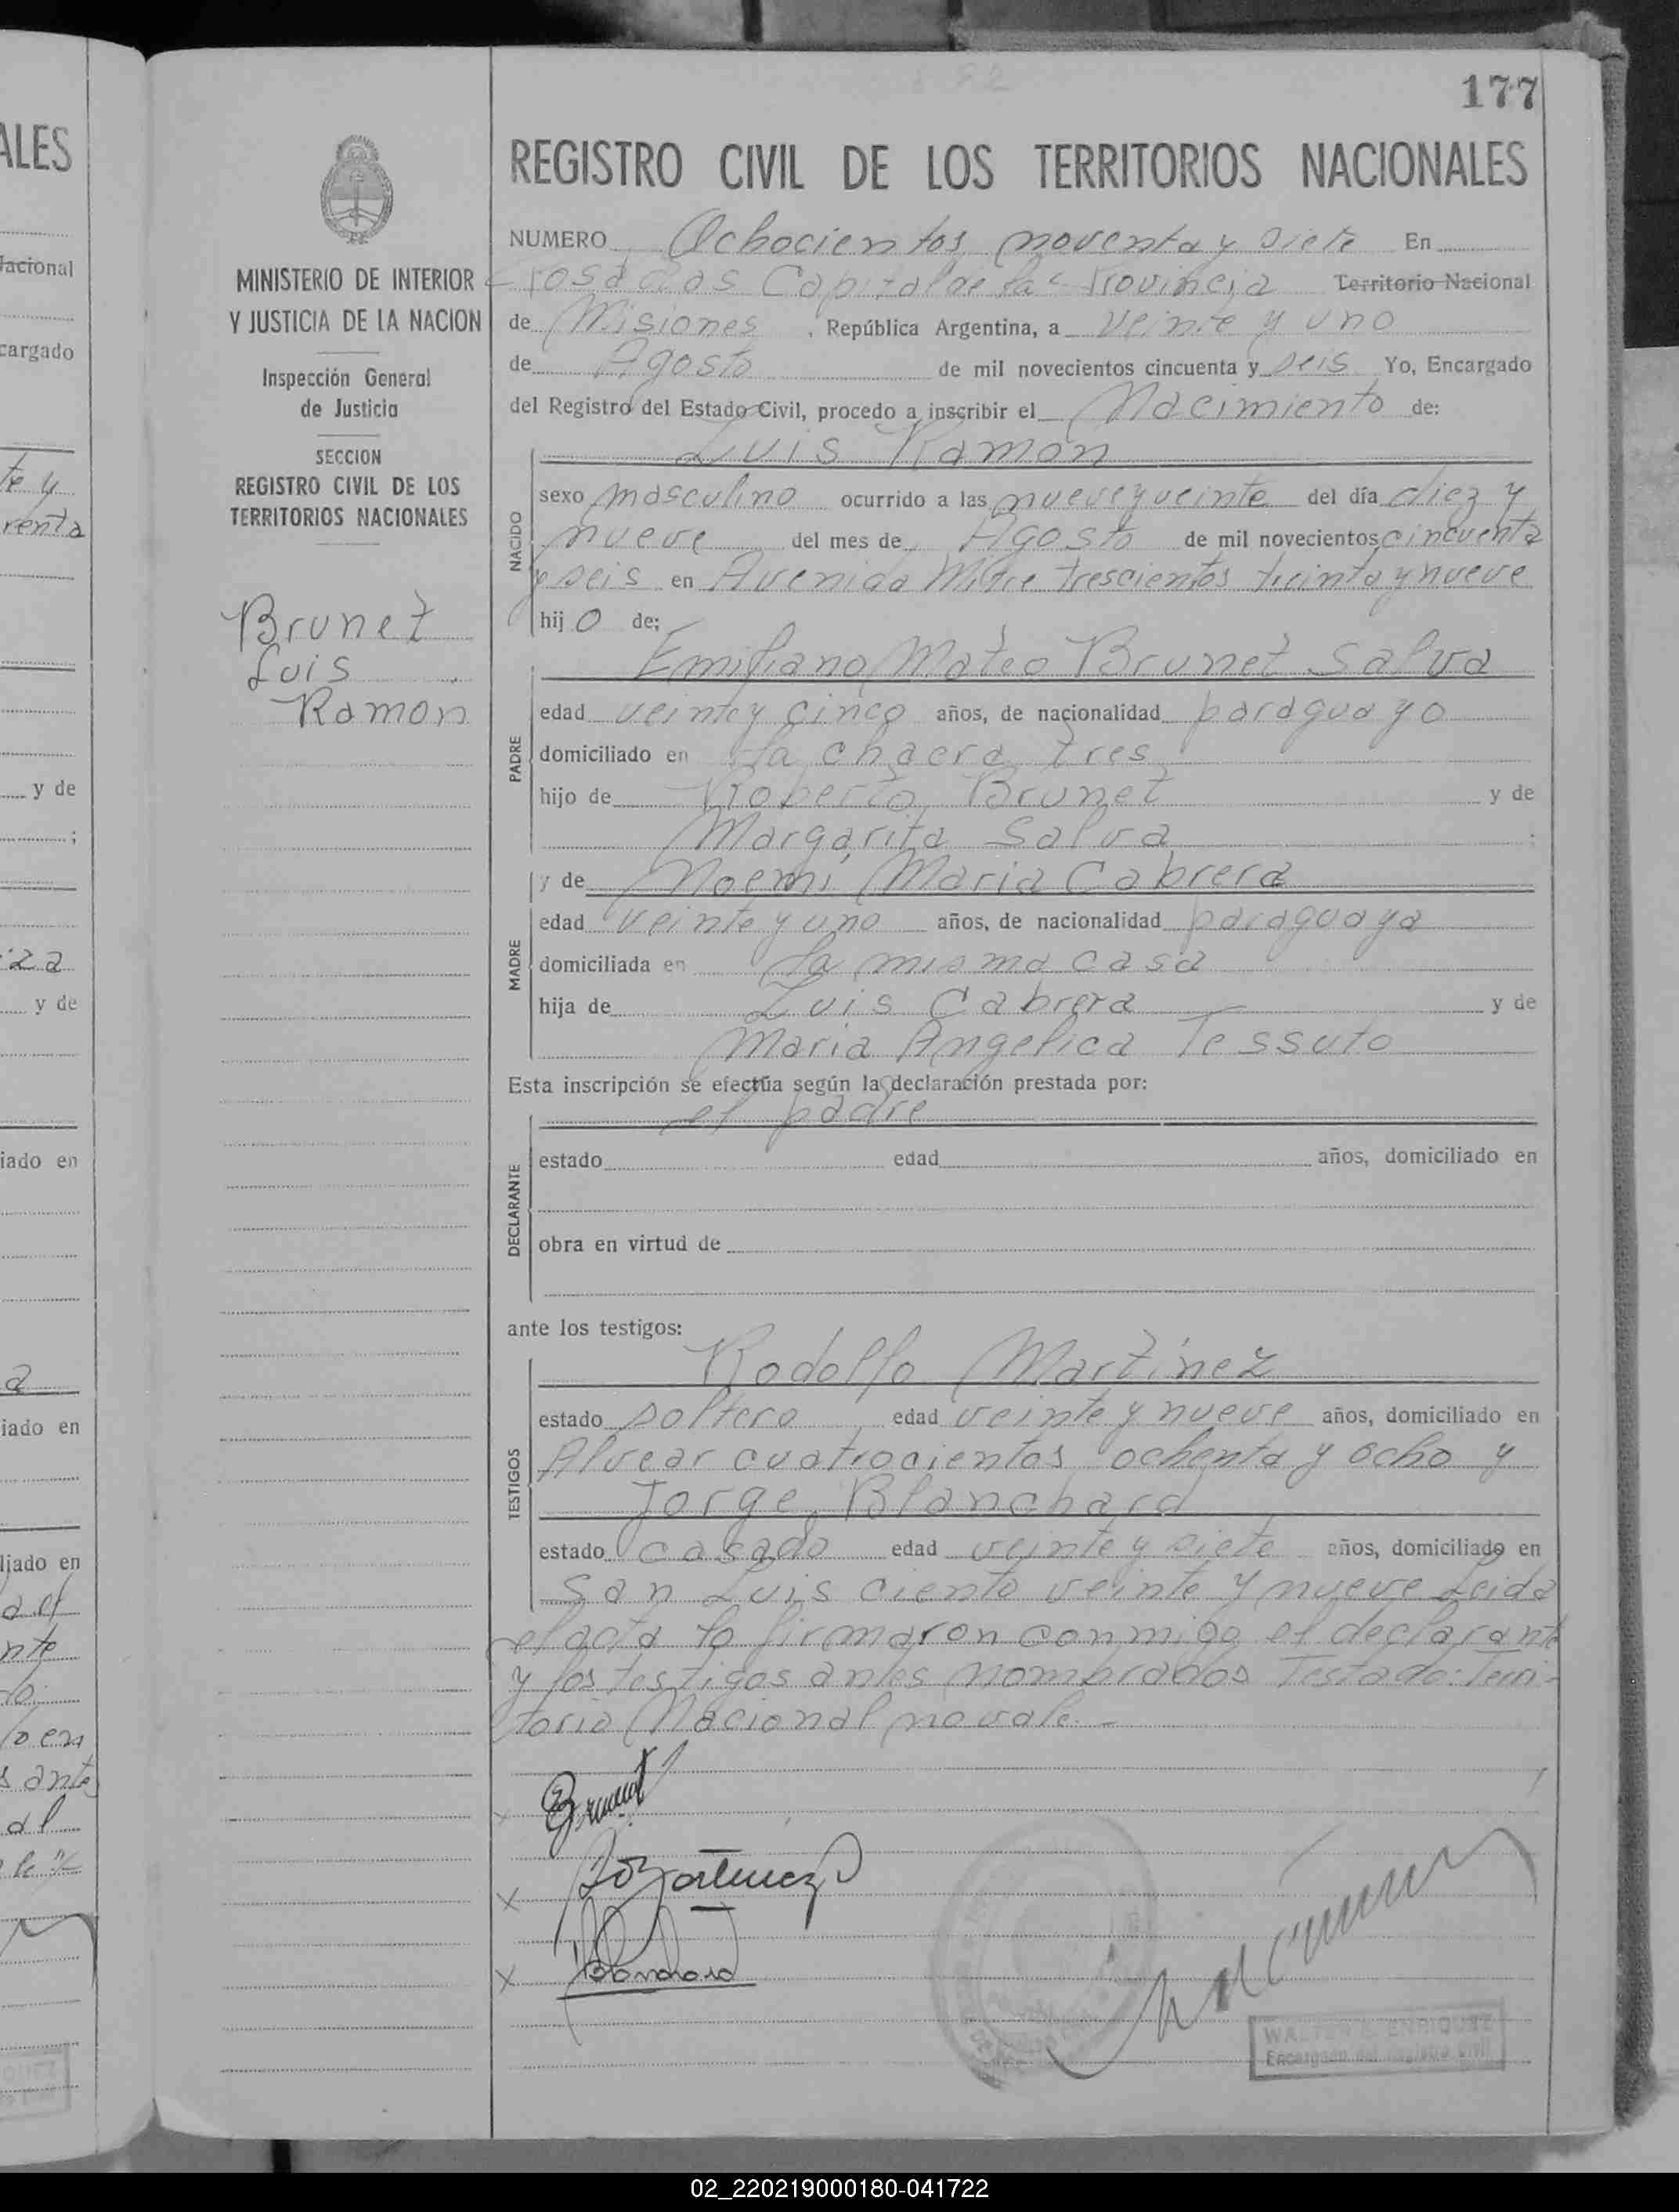 177
REGISTRO CIVIL DE LOS TERRITORIOS NACIONALES
MINISTERIO DE INTERIOR
Y JUSTICIA DE LA NACION
Inspección General
de Justicia
SECCION
REGISTRO CIVIL DE LOS
TERRITORIOS NACIONALES
Brunet
Luis
Ramon
NUMERO Ochocientos noventa y siete En
Posadas Capital de la Provincia Territorio Nacional
de Misiones , República Argentina, a veinte y uno
de Agosto de mil novecientos cincuenta y seis Yo, Encargado
del Registro del Estado Civil, procedo a inscribir el Nacimiento de:
Luis Ramon
NACIDO
sexo masculino ocurrido a las nueve y veinte del día diez y
nueve del mes de Agosto de mil novecientos cincuenta
y seis en Avenida Mitre trescientos treinta y nueve
hijo de:
Emiliano Mateo Brunet Salva
PADRE
edad veinte y cinco años, de nacionalidad paraguayo
domiciliado en la chacra tres
hijo de Roberto Brunet y de
Margarita Salva ;
y de Noemi Maria Cabrera
MADRE
edad veinte y uno años, de nacionalidad paraguaya
domiciliada en la misma casa
hija de Luis Cabrera y de
Maria Angelica Tessuto
Esta inscripción se efectúa según la declaración prestada por:
el padre
DECLARANTE
estado edad años, domiciliado en
obra en virtud de
ante los testigos:
Rodolfo Martinez
TESTIGOS
estado soltero edad veinte y nueve años, domiciliado en
Alvear cuatrocientos ochenta y ocho y
Jorge Blanchard
estado casado edad veinte y siete años, domiciliado en
San Luis ciento veinte y nueve Leida
el acta la firmaron conmigo el declarante
y los testigos antes nombrados Testado: Terri-
torio Nacional no vale.-
Brunet
WALTER E. ENRIQUEZ
Encargado del Registro Civil
02_220219000180-041722